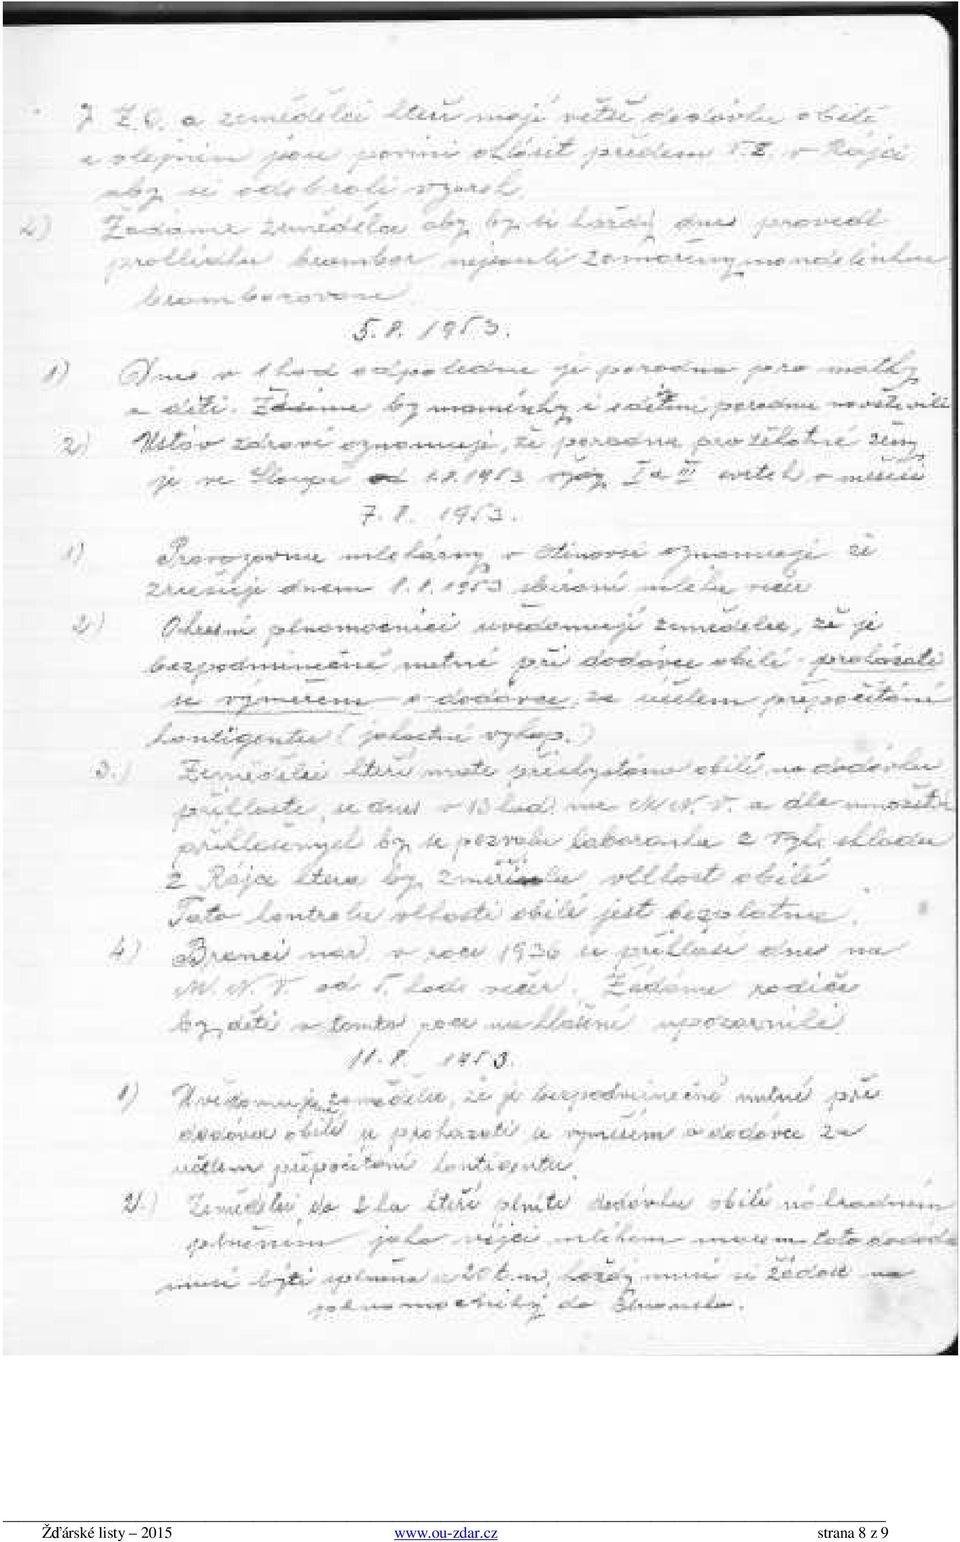 J. Z. D. a zemědělci kteří mají větší dodávku obilí
a olejnin jsou povini ohlásit předem V. Z. v Rájci
aby se odebrali vzorek.
2) Žádáme zemědělce aby by si každý dnes provedl
prohlídku brambor nejsouli zamořeny mandelinkou
bramborovou.
5. 8. 1953.
1) Dnes v 1 hod odpoledne je poradna pro matky
a děti. Žádáme by maminky s dětmi poradnu navštívili
2) Ústav zdraví oznamuje, že poradna pro těhotné ženy
je ve Sloupě od 1.8.1953 vždy I a III čtvrtek v měsíci
7. 8. 1953.
1) Provozovna mlékárny v oznamuje že
zrušuje dnem 8. 8. 1953 sbírání mléka večer
2) Okresní plnomocníci uvědomují zemědělce, že je
bezpodmínečně nutné při dodávce obilí prokázati
se výměrem o dodávce, za účelem přepočítání
kontigentu ( jakostní výkup.)
3.) Zemědělci kteří máte přichystáno obilí na dodávku
přihlaste se dnes v 13 hod. na M. N. V. a dle množství
přihlášených by se pozvala laborantka z skladu
z Rájce která by změřila vlhkost obilí
Tato kontrola vlhkosti obilí jest bezplatná.
4) Branci nar. v roce 1936 se přihlásí dnes na
M. N. V. od hod. večer. Žádáme rodiče
by děti v tomto na hlášení upozornili.
11. 8. 1953.
1) Uvědomuje zemědělce, že je bezpodmínečně nutné při
dodávce obilí se prokázati se výměrem o dodávce za
účelem přepočítání kontigentu.
2.) Zemědělci do 2 ha kteří plníte dodávku obilí náhradním
plněním jako vejci mlékem masem tato dodávka
musí býti splněna k 20 t. m. každý musí si žádost na
plnomocníky do Blanska.
Žďárské listy – 2015 www.ou-zdar.cz strana 8 z 9